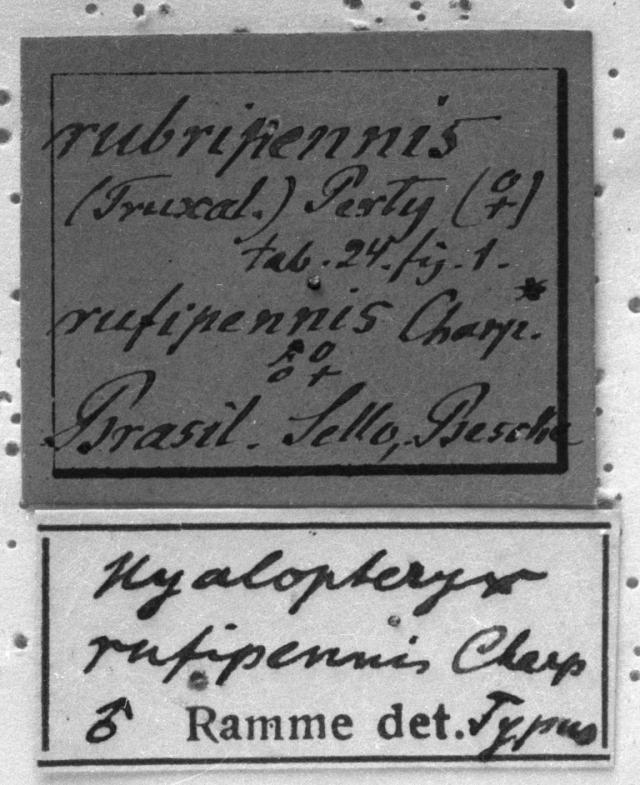 rubripennis
(Truxal.) Perty (♀)
tab. 24. fig. 1.
rufipennis Charp.*
♂ ♀
Brasil. Sello, Beschke
Hyalopteryx
rufipennis Charp
♂ Ramme det. Typus